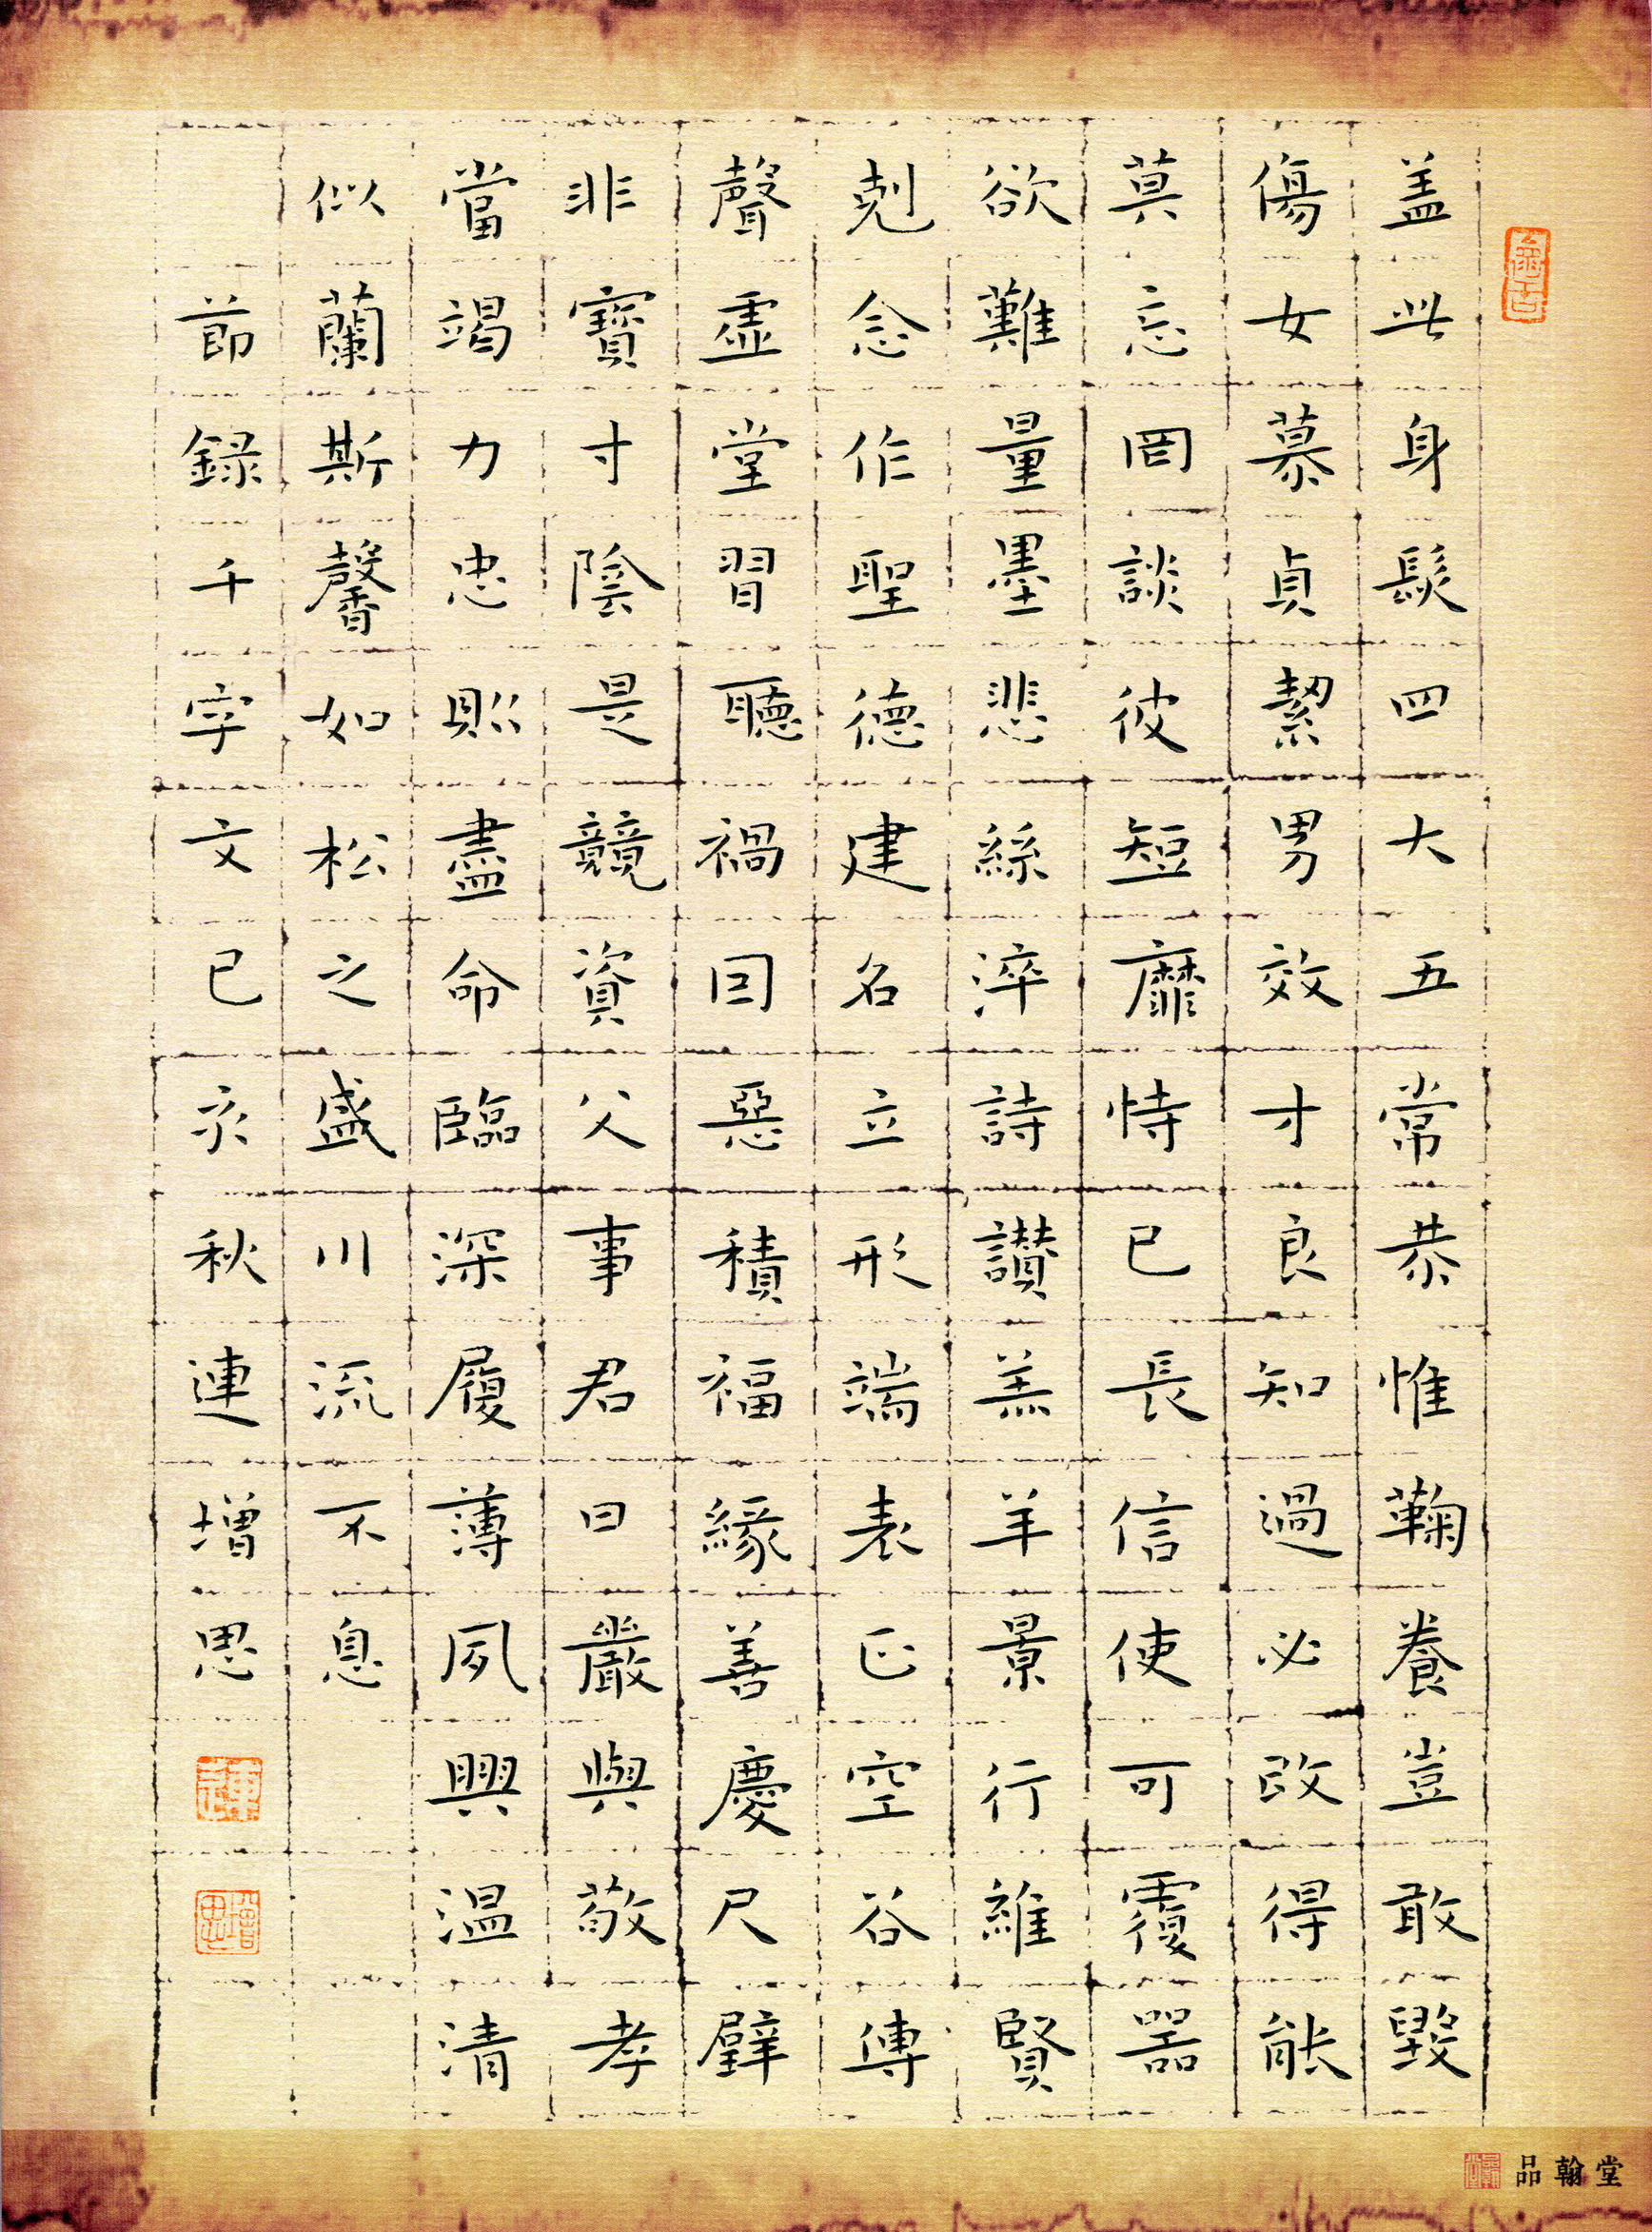 盖此身髮四大五常恭惟鞠養豈敢毀
傷女慕貞絜男效才良知過必改得能
莫忘罔談彼短靡恃己長信使可覆器
欲難量墨悲絲淬詩讚羔羊景行維賢
剋念作聖德建名立形端表正空谷傳
聲虛堂習聽禍因惡積福緣善慶尺璧
非寶寸陰是競資父事君曰嚴與敬孝
當竭力忠則盡命臨深履薄夙興温清
似蘭斯馨如松之盛川流不息
節錄千字文己亥秋連增思
增思
品翰堂